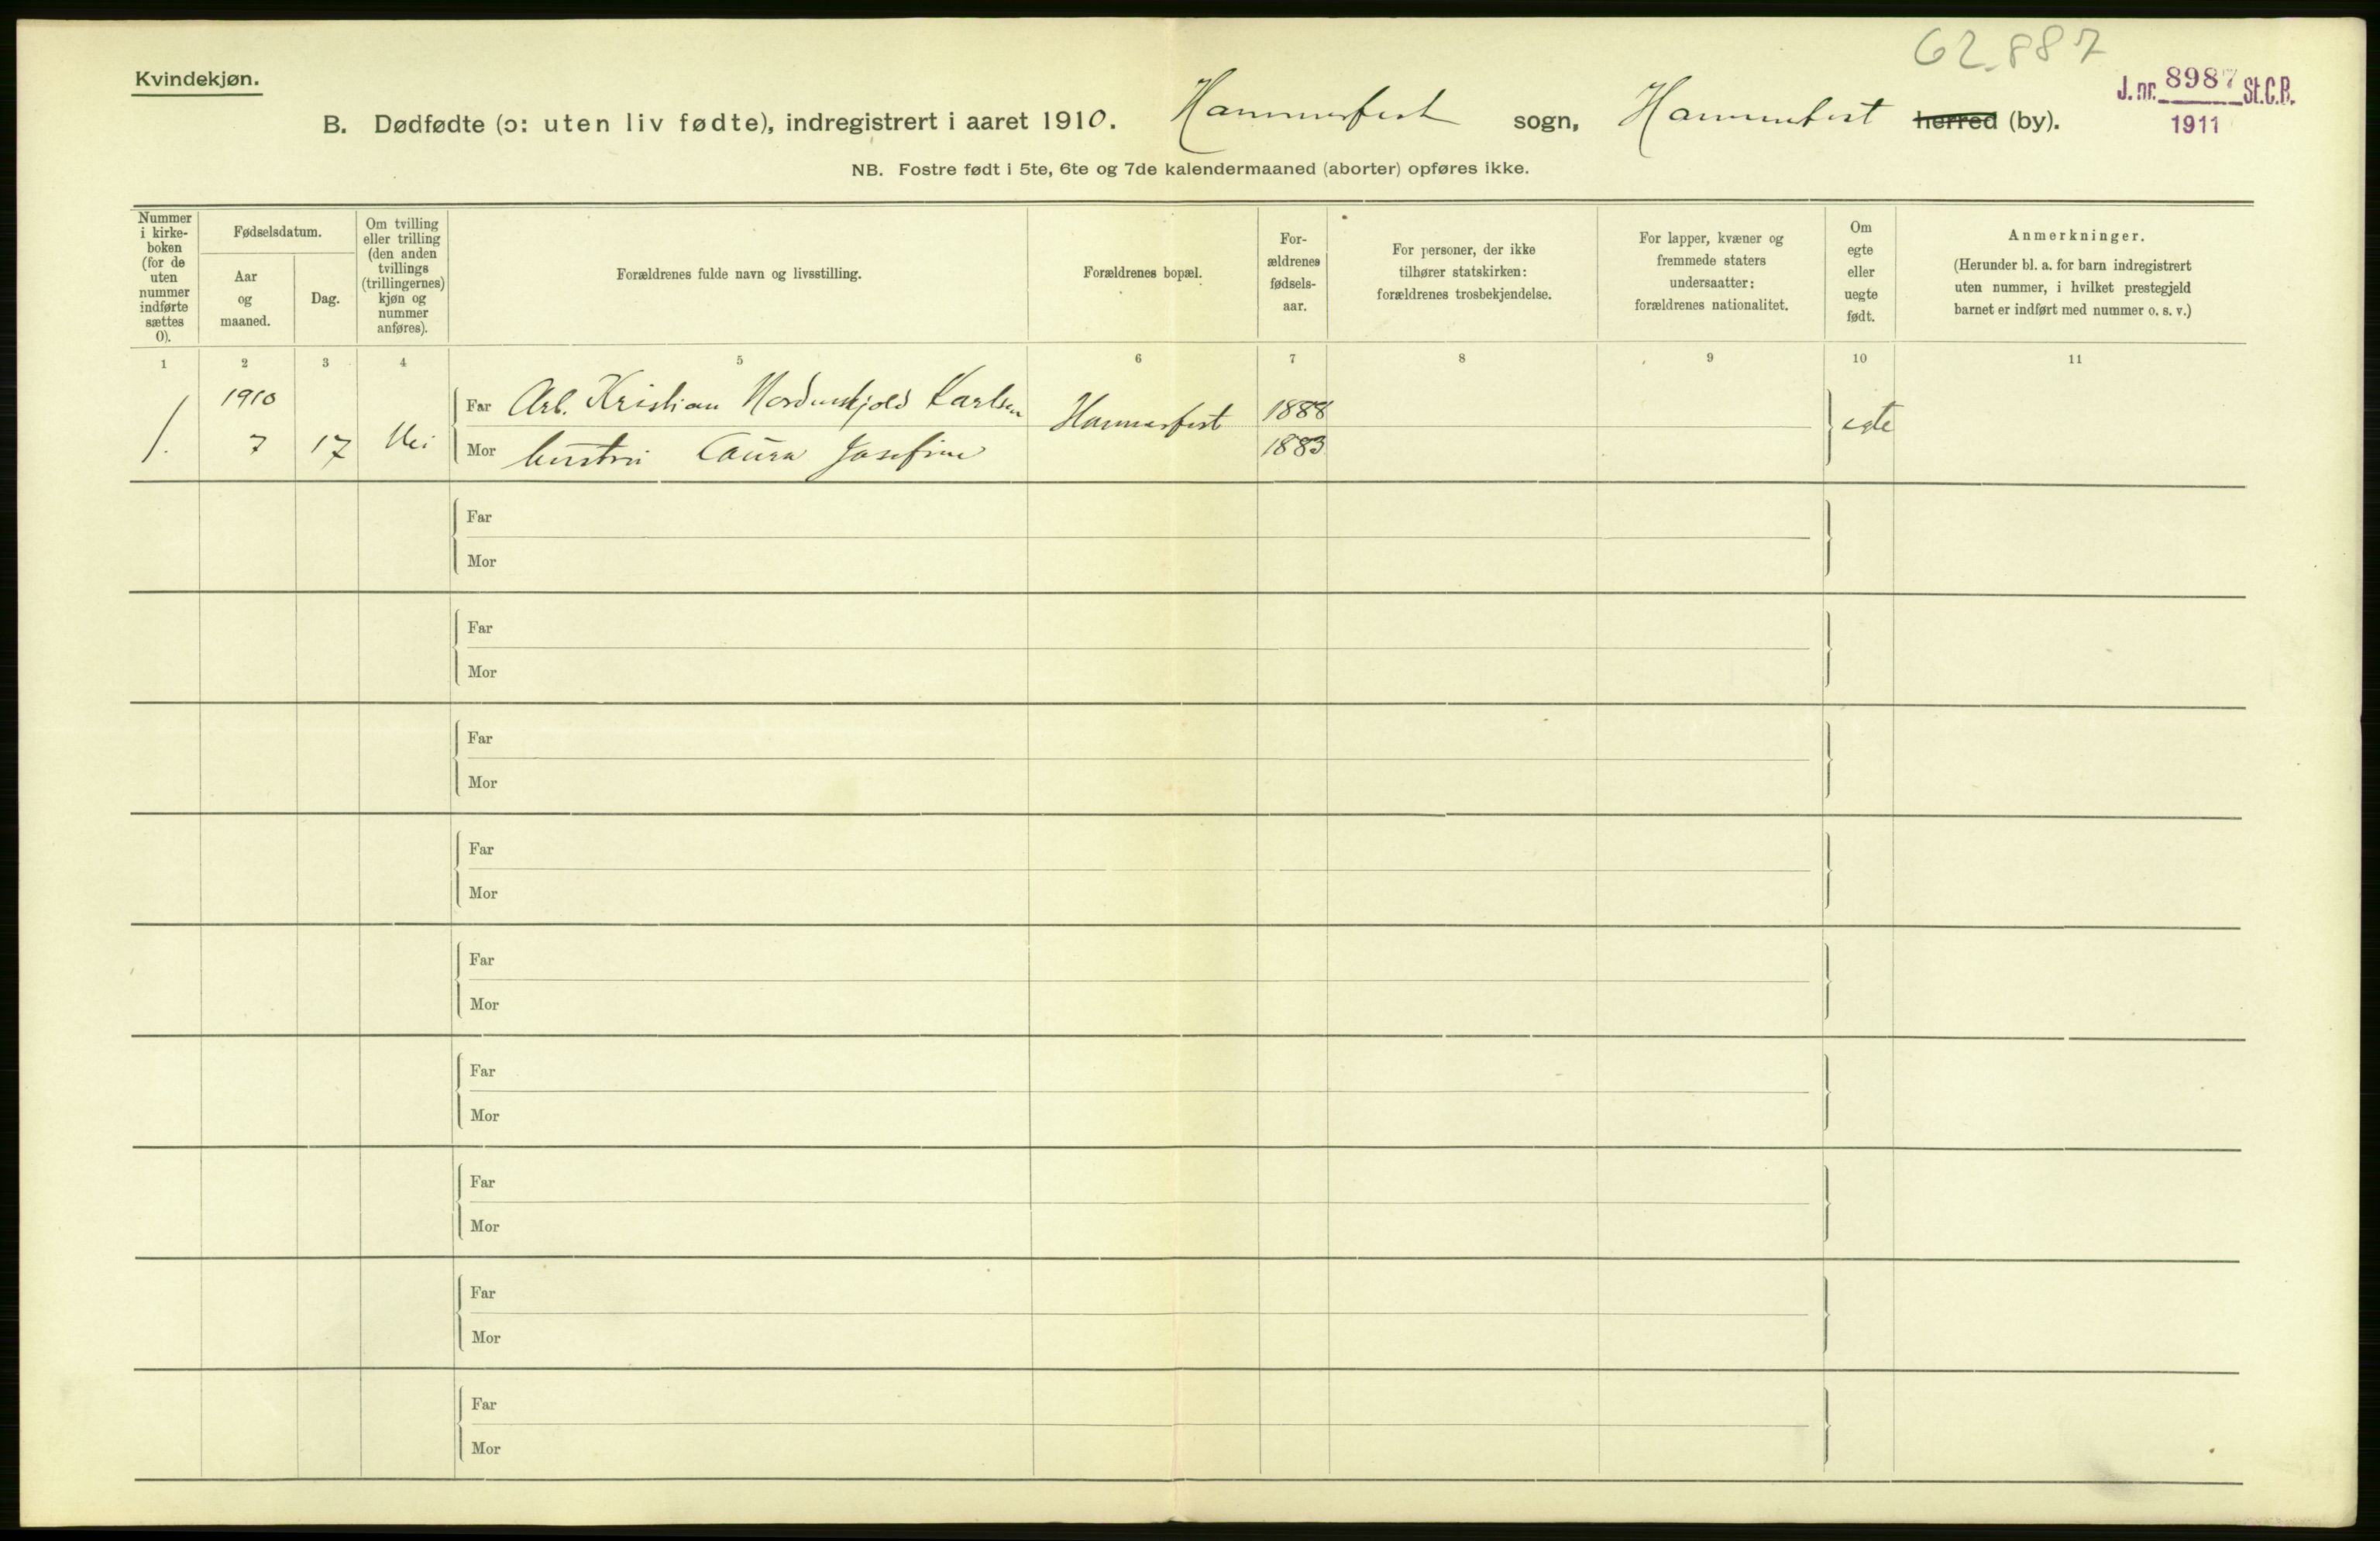 62.887
Kvindekjøn.
J. nr. 8987 St.C.B.
1911
B. Dødfødte (ɔ: uten liv fødte), indregistrert i aaret 1910. Hammerfest sogn, Hammerfest herred (by).
NB. Fostre født i 5te, 6te og 7de kalendermaaned (aborter) opføres ikke.
Nummer
i kirke-
boken
(for de
uten
nummer
indførte
sættes
0).
Fødselsdatum.
Aar
og
maaned.
Dag.
Om tvilling
eller trilling
(den anden
tvillings
(trillingernes)
kjøn og
nummer
anføres).
Forældrenes fulde navn og livsstilling.
Forældrenes bopæl.
For-
ældrenes
fødsels-
aar.
For personer, der ikke
tilhører statskirken:
forældrenes trosbekjendelse.
For lapper, kvæner og
fremmede staters
undersaatter:
forældrenes nationalitet.
Om
egte
eller
uegte
født.
Anmerkninger.
(Herunder bl. a. for barn indregistrert
uten nummer, i hvilket prestegjeld
barnet er indført med nummer o. s. v.)
1 2 3 4 5 6 7 8 9 10 11
1910
Far Arb. Kristian Nordenskjold Karlsen 1888
1. 7 17 Nei Hammerfest egte
Mor hustru Laura Josefine 1883
Far
Mor
Far
Mor
Far
Mor
Far
Mor
Far
Mor
Far
Mor
Far
Mor
Far
Mor
Far
Mor